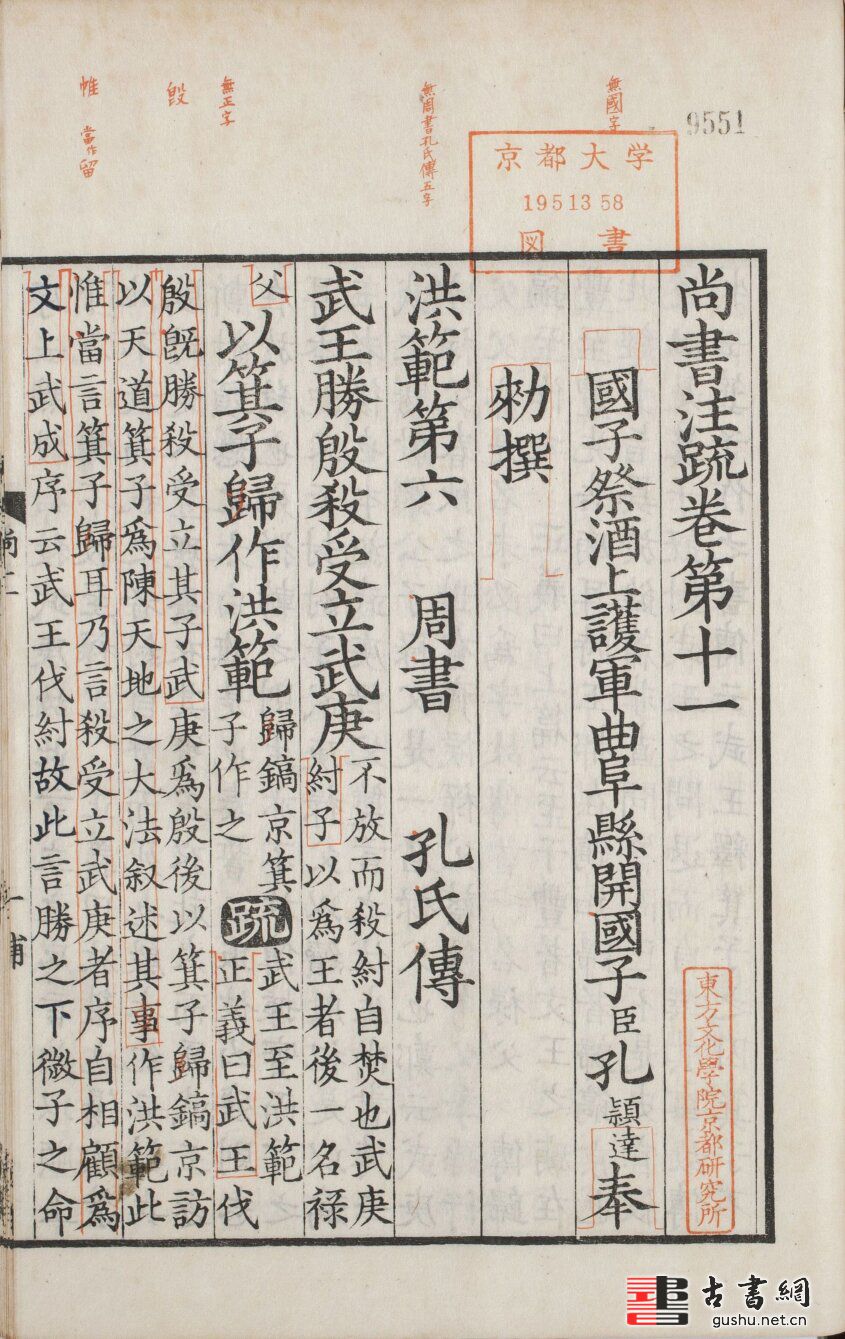 無國字
無周書孔氏傳五字
無正字
殷
惟 當作留
9551
京都大学
195 13 58
図書
尚書注疏卷第十一
國子祭酒上護軍曲阜縣開國子臣孔穎達奉
勑撰
洪範第六 周書 孔氏傳
武王勝殷殺受立武庚不放而殺紂自焚也武庚
紂子以爲王者後一名祿
父以箕子歸作洪範歸鎬京箕
子作之疏武王至洪範
正義曰武王伐
殷既勝殺受立其子武庚爲殷後以箕子歸鎬京訪
以天道箕子爲陳天地之大法叙述其事作洪範此
惟當言箕子歸耳乃言殺受立武庚者序自相顧爲
文上武成序云武王伐紂故此言勝之下微子之命
東方文化學院京都研究所
古書網
gushu.net.cn